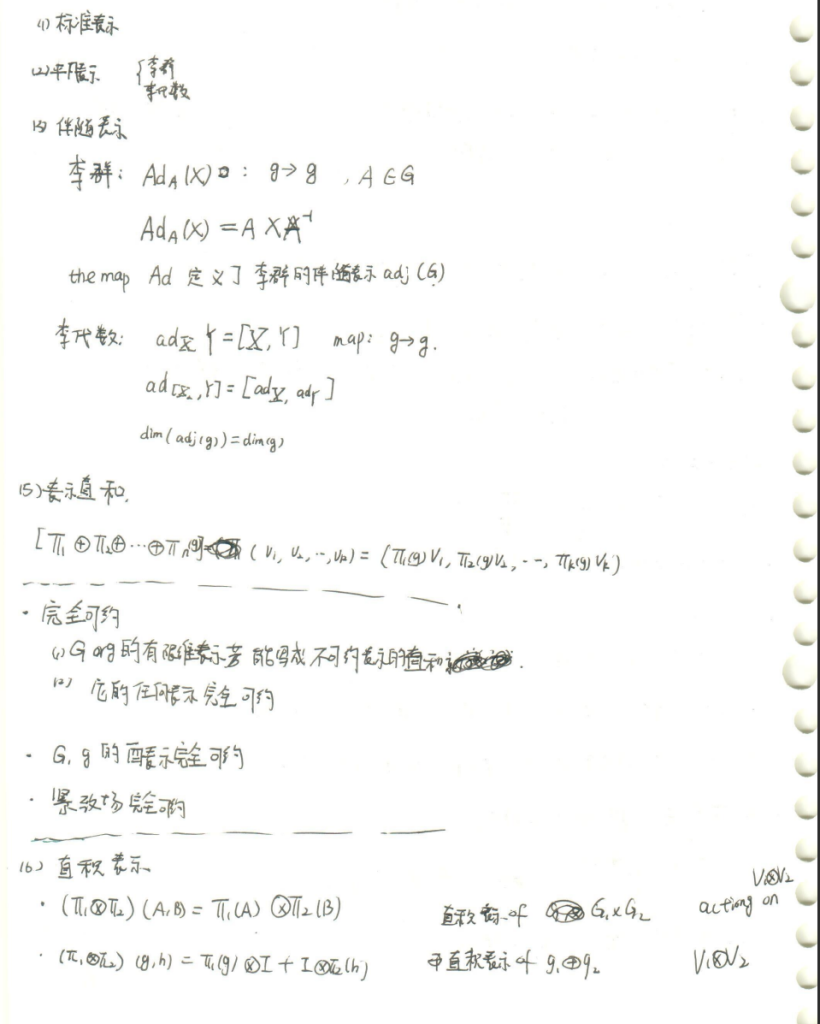 (1) 标准表示
(2) 平凡表示 { 李群
李代数
(3) 伴随表示
李群: Ad_A(X) : g→g , A∈G
Ad_A(X) = A X A^{-1}
the map Ad 定义了 李群的伴随表示 adj(G)
李代数: ad_X Y = [X, Y] map: g→g.
ad_{[X, Y]} = [ad_X, ad_Y]
dim(adj(g)) = dim(g)
(5) 表示直和.
[π₁⊕π₂⊕…⊕πₙ(g)] (v₁, v₂, …, vₖ) = (π₁(g)v₁, π₂(g)v₂, …, πₖ(g)vₖ)
· 完全可约
(1) G or g 的有限维表示若能写成不可约表示的直和.
(2) 它的任何表示完全可约
· G, g 的酉表示完全可约
· 紧致 完全可约
(6) 直积表示
· (π₁⊗π₂)(A,B) = π₁(A)⊗π₂(B) 直积表示 of G₁×G₂ acting on V₁⊗V₂
· (π₁⊗π₂)(g,h) = π₁(g)⊗I + I⊗π₂(h) 直积表示 of g₁⊕g₂ V₁⊗V₂